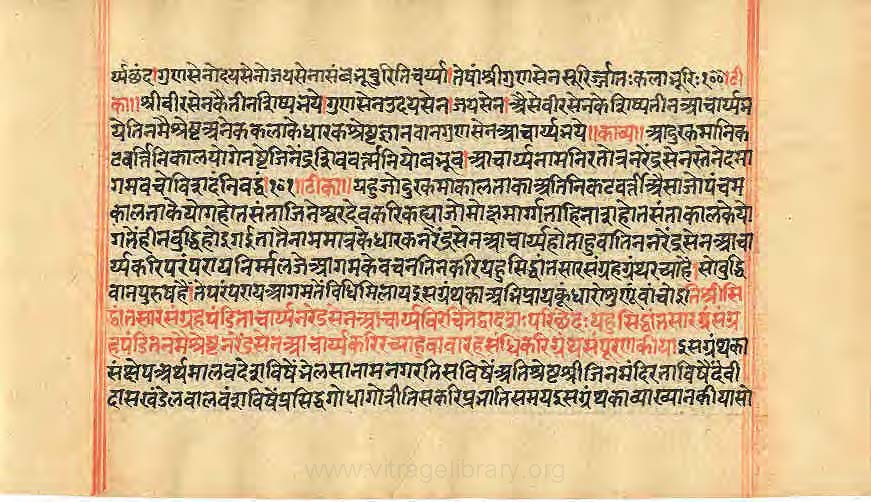 र्य्यछंद।गुणसेनोदयसेनोजयसेनासंबभूवुरितिचर्य्या।तेषांश्रीगुणसेनसूरिर्ज्जातःकलाभूरिः१००।टी
का॥श्रीवीरसेनकैतीनशिष्यभये।गुणसेनउदयसेनजयसेन।ऐसेवीरसेनकेशिष्यतीनआचार्य्यभ
येतिनमैश्रेष्टअनेककलाकेधारकश्रेष्टज्ञानवानगुणसेनआचार्य्यभये॥काव्य॥आदुरकमानिक
टवर्त्तिनिकालयोगेनष्टेजिनेंद्रशिववर्त्मनियोबभूव।आचार्य्यनामनिरतोत्रनरेंद्रसेनस्तेनेदमा
गमवचोविशदंनिबद्धं।१०१॥टीका॥यहुजोदुरकमाकालताकाअतिनिकटवर्त्तीऐसाजोपंचम
कालताकैयोगहोतसंताजिनेश्वरदेवकरिकह्याजोमोक्षमार्गताहिनाशहोतसंताकालकेयो
गतेंहीनबुद्धिहोइगईतातैनाममात्रकेधारकनरेंद्रसेनआचार्य्यहोताहुवातिननरेंद्रसेनआचा
र्य्यकरिपरंपरायनिर्म्मलजेआगमकेवचनतिनकरियहुसिद्धांतसारसंग्रहग्रंथरच्याहै।सोबुद्धि
वानपुरुषहै।तेपरंपरायआगमतेंविधिमिलायइसग्रंथकाअभिप्रायकूंधारोसुणूंवांचोइतिश्रीसि
द्धांतसारसंग्रहेपंडिताचार्य्यनरेंद्रसेनआचार्य्यविरचितेद्वादशःपरिछेदःयहुसिद्धांतसारसंग्र
हपंडितनमैश्रेष्टनरेंद्रसेनआचार्य्यकरिरच्याहुवाबारहसंधिकरिग्रंथसंपूरणकीया।इसग्रंथका
संक्षेपअर्थमालवदेशविषेंभेलसानामनगरतिसविषेंअतिश्रेष्टश्रीजिनमंदिरताविषैंदेवी
दासखंडेलवालवंशविषेंप्रसिद्धगोधागोत्रीतिसकरिप्रभातिसमयइसग्रंथकाव्याख्यानकीयासो
www.vitragelibrary.org